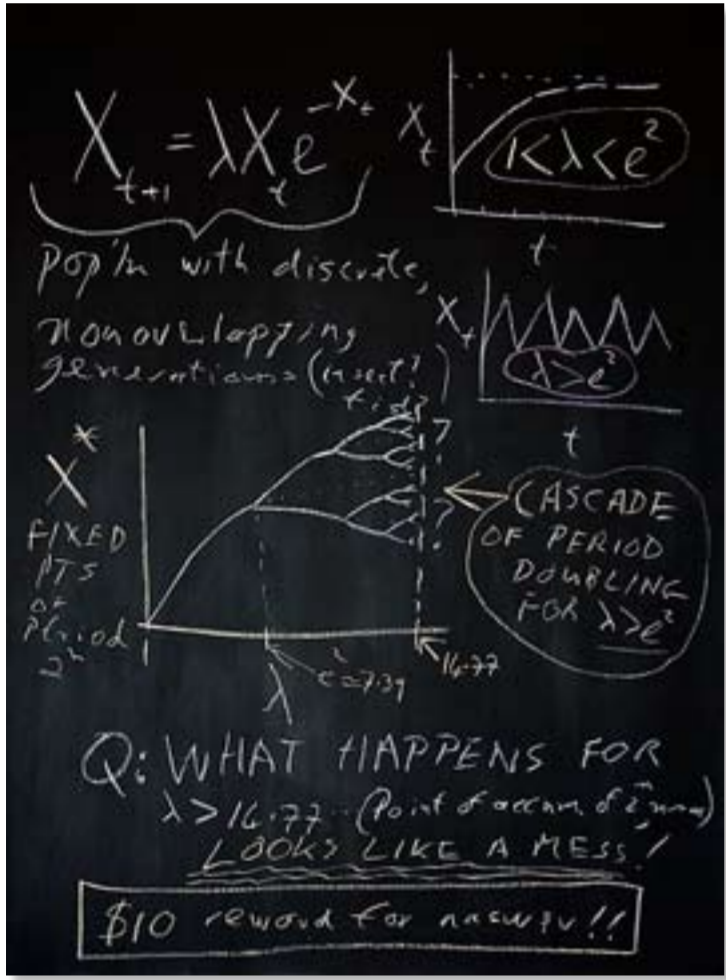 X_{t+1} = λX_t e^{-X_t}
X_t
1<λ<e²
t
pop'ln with discrete,
nonoverlapping
generations (insect?
X_t
λ>e²
t
X*
FIXED
PTS
OF
Period
2ⁿ
CASCADE
OF PERIOD
DOUBLING
FOR λ>e²
? ?
λ
e²=7.39
16.77
Q: WHAT HAPPENS FOR
λ>16.77 (Point of accum. of 2ⁿ,
LOOKS LIKE A MESS!
$10 reward for answer!!